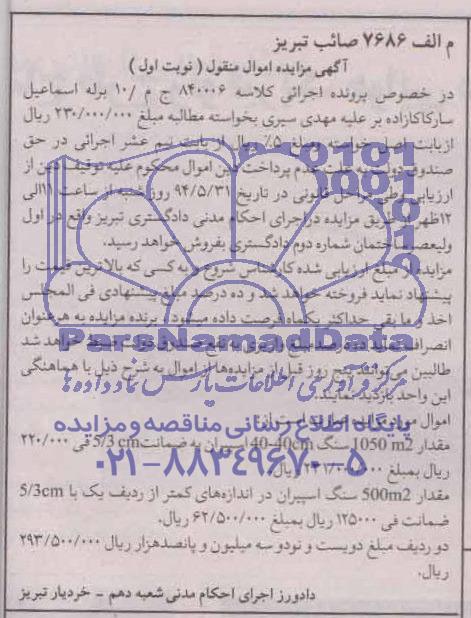 م الف ۷۶۸۶ صائب تبریز
آگهی مزایده اموال منقول ( نوبت اول )
در خصوص پرونده اجرائی کلاسه ۸۴۰۰۰۶ ج م /۱۰ برله اسماعیل
سارکاکازاده بر علیه مهدی سیری بخواسته مطالبه مبلغ ۲۳۰/۰۰۰/۰۰۰ ریال
ازبابت اصل خواسته ومبلغ ۵٪ ریال از بابت نیم عشر اجرائی در حق
صندوق دولت به علت عدم پرداخت دین اموال محکوم علیه توقیف و پس از
ارزیابی وطی مراحل قانونی در تاریخ ۹۴/۵/۳۱ روز شنبه از ساعت ۱۱الی
۱۲ظهر از طریق مزایده دراجرای احکام مدنی دادگستری تبریز واقع در اول
ولیعصر ساختمان شماره دوم دادگستری بفروش خواهد رسید.
مزایده از مبلغ ارزیابی شده کارشناس شروع و به کسی که بالاترین قیمت را
پیشنهاد نماید فروخته خواهد شد و ده درصد مبلغ پیشنهادی فی المجلس
اخذ و ما بقی حداکثر یکماه فرصت داده میشود و برنده مزایده به هرعنوان
انصراف نماید ده درصد مبلغ واریزی به نفع صندوق دولت ضبط خواهد شد
طالبین می‌توانند پنج روز قبل از مزایده از اموال به شرح ذیل با هماهنگی
این واحد بازدید نمایند.
اموال مورد مزایده عبارتند است از:
مقدار 1050 m2 سنگ 40-40cm اسپیران به ضمانت 5/3 cm فی ۲۲۰/۰۰۰
ریال بمبلغ ۲۳۱/۰۰۰/۰۰۰ ریال.
مقدار 500m2 سنگ اسپیران در اندازه‌های کمتر از ردیف یک با 5/3cm
ضمانت فی ۱۲۵۰۰۰ ریال بمبلغ ۶۲/۵۰۰/۰۰۰ ریال.
دو ردیف مبلغ دویست و نودو سه میلیون و پانصدهزار ریال ۲۹۳/۵۰۰/۰۰۰
ریال.
دادورز اجرای احکام مدنی شعبه دهم - خردیار تبریز
ParsNamadData
مرکز فرآوری اطلاعات پارس نماد داده‌ها
پایگاه اطلاع رسانی مناقصه ومزایده
۰۲۱-۸۸۳۴۹۶۷۰-۵